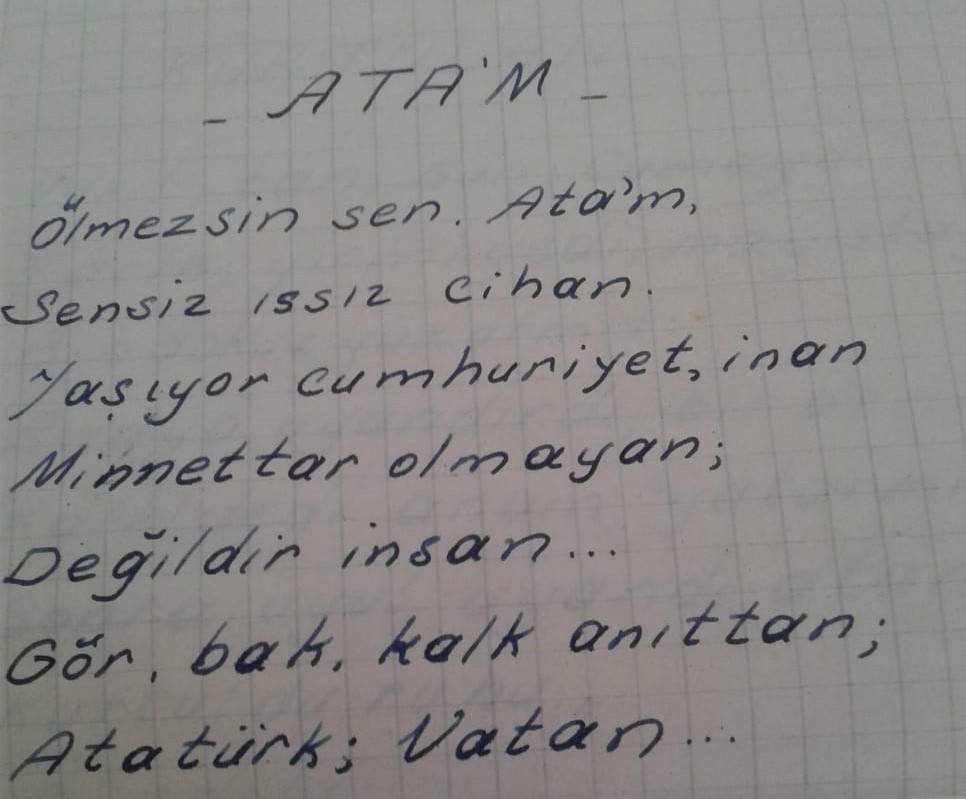 - ATA'M -
Ölmezsin sen. Ata'm,
Sensiz ıssız cihan.
Yaşıyor cumhuriyet, inan
Minnettar olmayan;
Değildir insan...
Gör, bak, kalk anıttan;
Atatürk; Vatan...